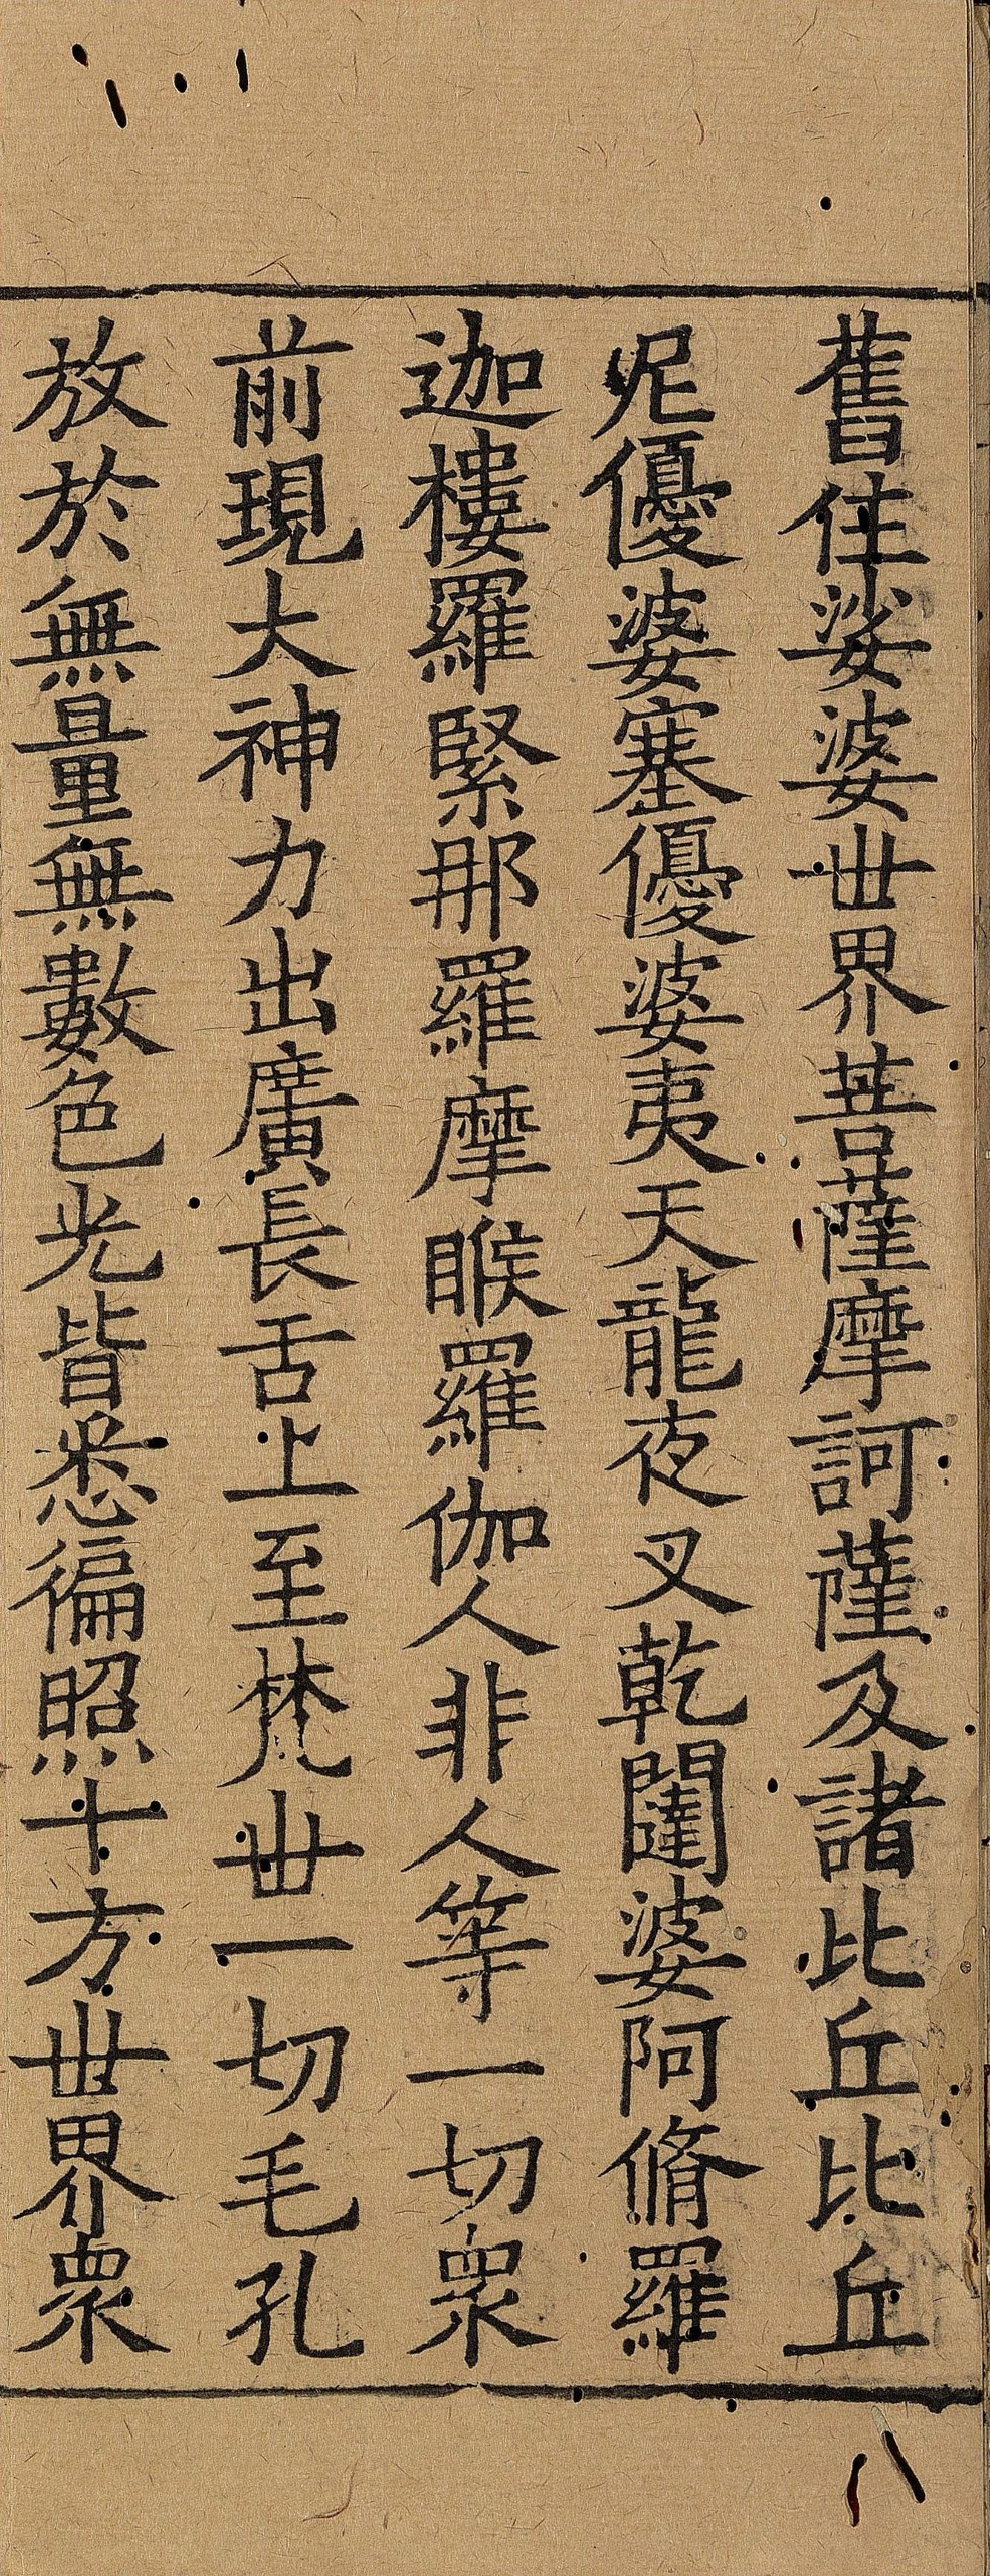 舊住娑婆世界菩薩摩訶薩及諸比丘比丘
尼優婆塞優婆夷天龍夜叉乾闥婆阿脩羅
迦樓羅緊那羅摩睺羅伽人非人等一切衆
前現大神力出廣長舌上至梵世一切毛孔
放於無量無數色光皆悉徧照十方世界衆